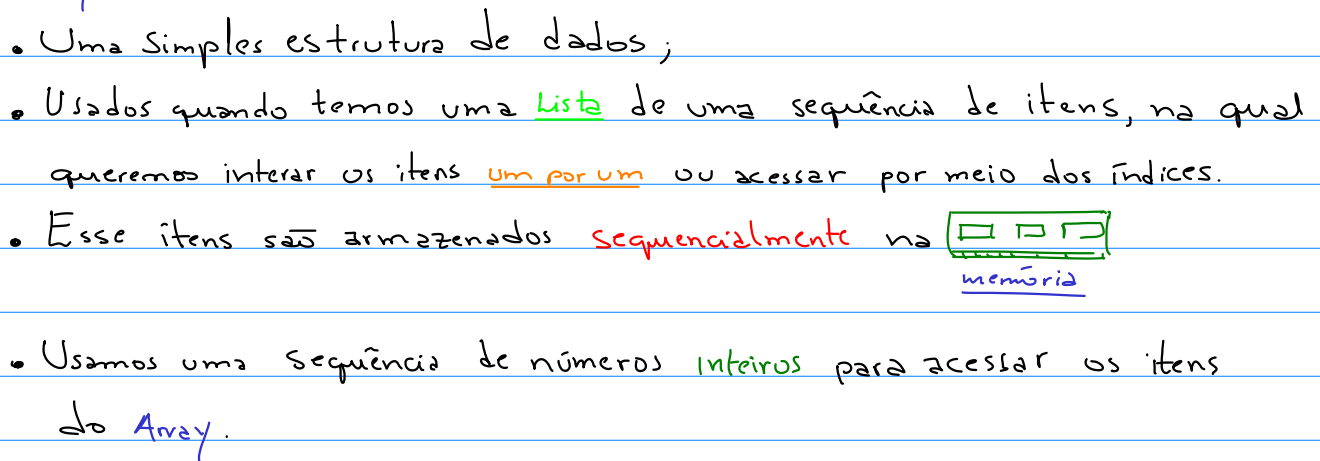 • Uma simples estrutura de dados;
• Usados quando temos uma Lista de uma sequência de itens, na qual
queremos interar os itens um por um ou acessar por meio dos índices.
• Esse itens são armazenados sequencialmente na
memória
• Usamos uma sequência de números inteiros para acessar os itens
do Array.